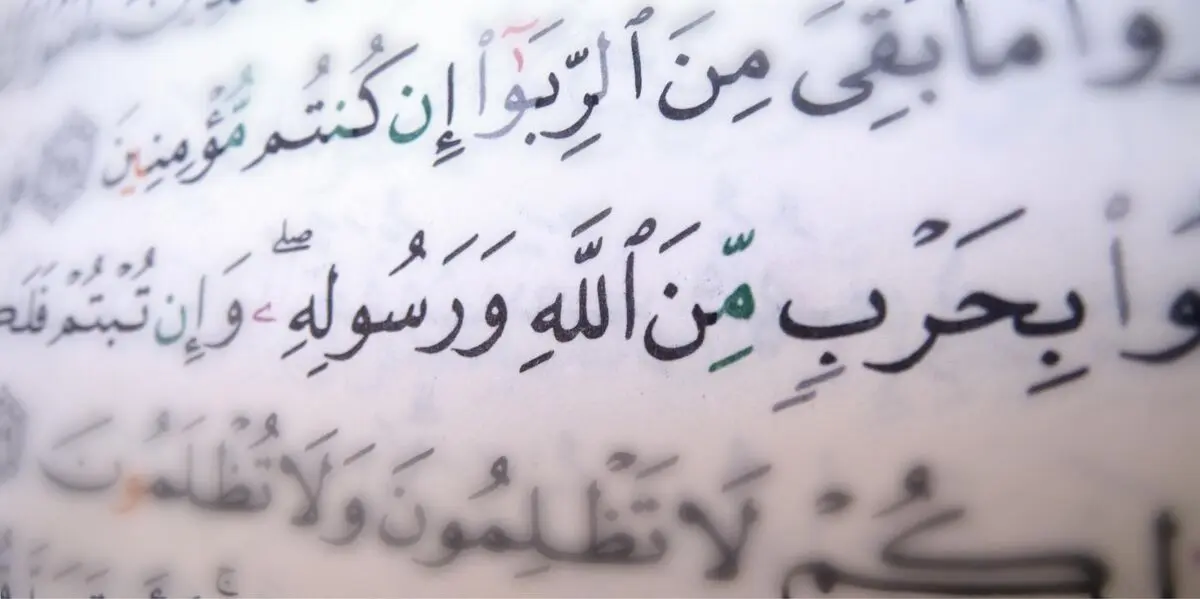 وا۟ مَا بَقِىَ مِنَ ٱلرِّبَوٰٓا۟ إِن كُنتُم مُّؤْمِنِينَ
وا۟ بِحَرْبٍ مِّنَ ٱللَّهِ وَرَسُولِهِۦ ۖ وَإِن تُبْتُمْ
لَكُمْ لَا تَظْلِمُونَ وَلَا تُظْلَمُونَ